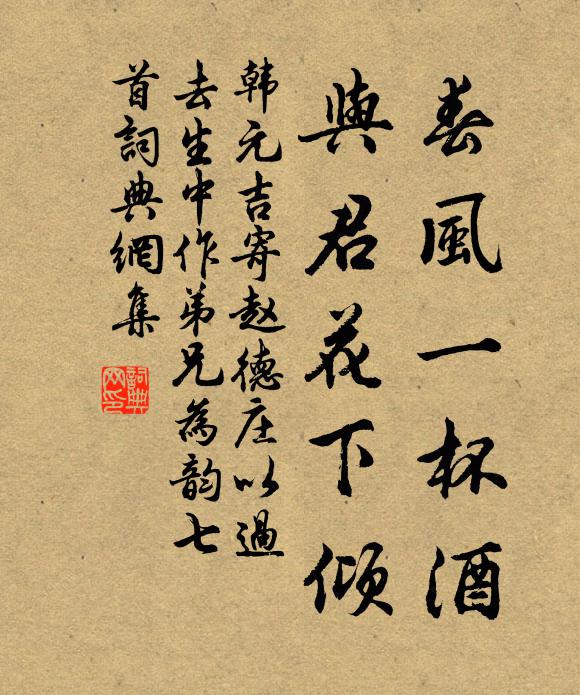 春風一杯酒
與君花下傾
韩元吉寄赵德庄以過
去生中作弟兄為韵七
首詞典網集
詞典
网印